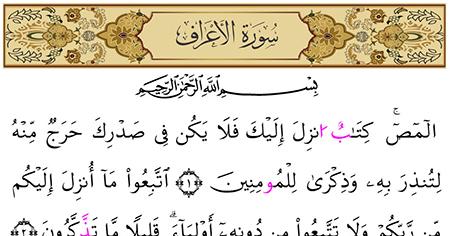 سُورَةُ الأَعْرَافِ
بِسْمِ اللَّهِ الرَّحْمَٰنِ الرَّحِيمِ
الٓمٓصٓۚ كِتَٰبٌ انزِلَ إِلَيْكَ فَلَا يَكُن فِى صَدْرِكَ حَرَجٌ مِّنْهُ
لِتُنذِرَ بِهِۦ وَذِكْرَىٰ لِلْمُومِنِينَ ﴿١﴾ ٱتَّبِعُوا۟ مَآ أُنزِلَ إِلَيْكُم
مِّن رَّبِّكُمْ وَلَا تَتَّبِعُوا۟ مِن دُونِهِۦٓ أَوْلِيَآءَۗ قَلِيلًا مَّا تَذَّكَّرُونَ ﴿٢﴾